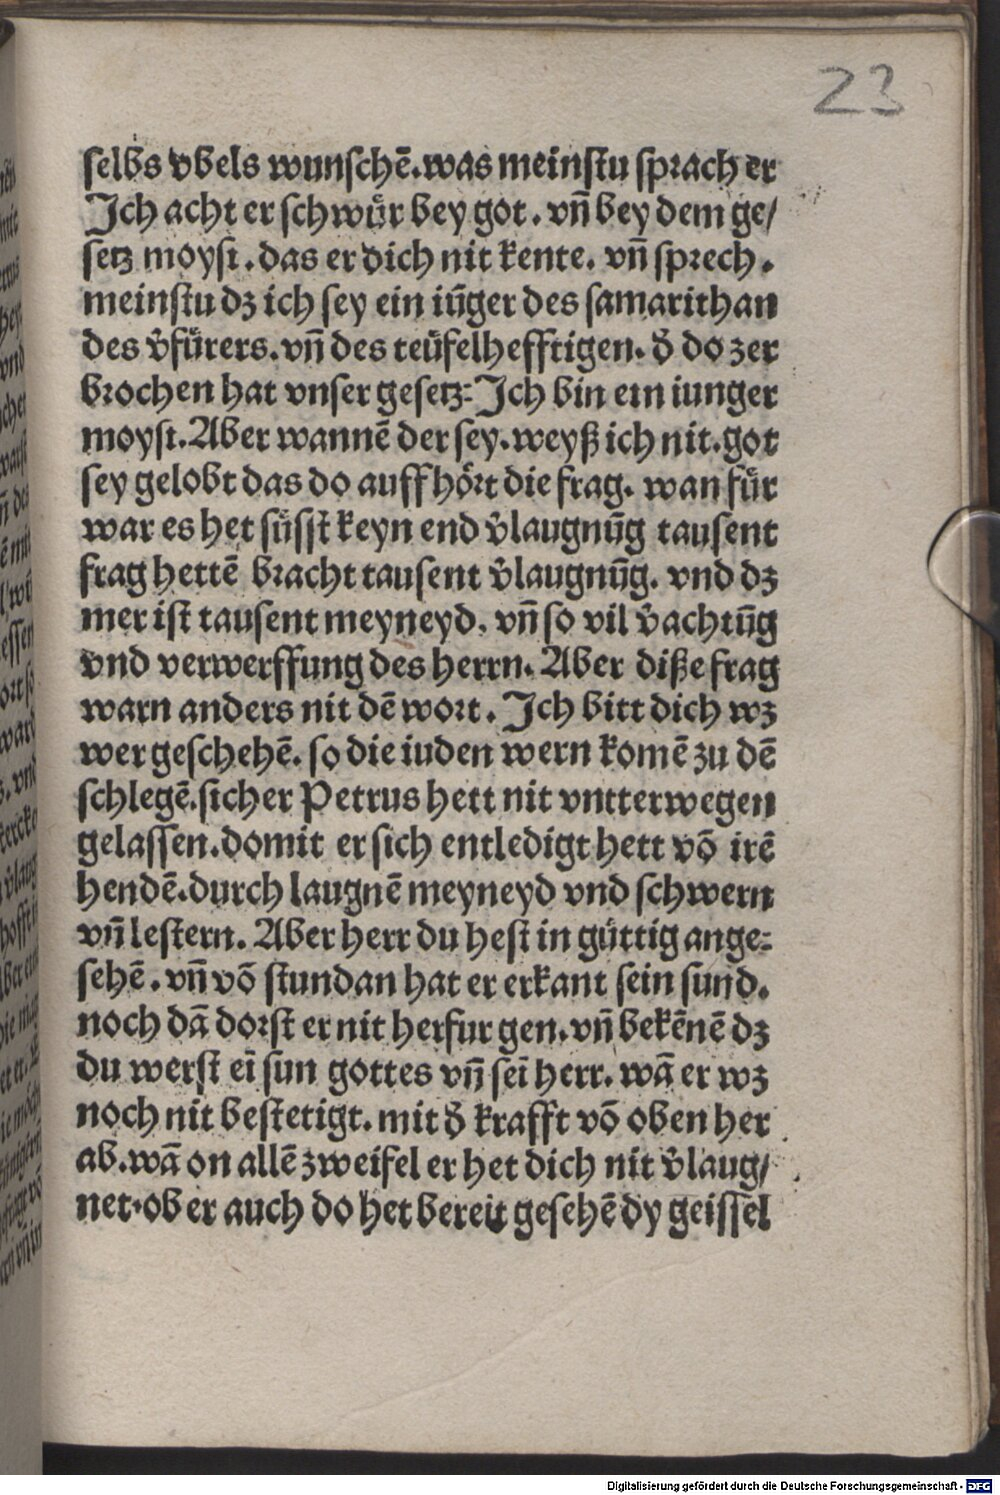 23
selbs vbels wunschē.was meinstu sprach er
Ich acht er schwuͤr bey got. vñ bey dem ge/
setz moysi.das er dich nit kente. vñ sprech.
meinstu dz ich sey ein iūger des samarithan
des v̄fuͤrers.vñ des teuͤfelhefftigen. d̄ do zer
brochen hat vnser gesetz: Ich bin ein iunger
moysi.Aber wannē der sey.weyß ich nit.got
sey gelobt das do auff hoͤrt die frag. wan fuͤr
war es het suͤsst keyn end v̄laugnūg tausent
frag hettē bracht tausent v̄laugnūg. vnd dz
mer ist tausent meyneyd. vñ so vil v̄achtūg
vnd verwerffung des herrn. Aber diße frag
warn anders nit dē wort. Ich bitt dich wz
wer geschehē. so die iuden wern komē zu dē
schlegē.sicher Petrus hett nit vntterwegen
gelassen.domit er sich entledigt hett vō irē
hendē.durch laugnē meyneyd vnd schwern
vñ lestern. Aber herr du hest in guͤttig ange:
sehē. vñ vō stundan hat er erkant sein sund.
noch dā dorst er nit herfur gen.vñ bekēnē dz
du werst eī sun gottes vñ seī herr. wā er wz
noch nit bestetigt. mit d̄ krafft vō oben her
ab.wā on allē zweifel er het dich nit v̄laug/
net.ob er auch do het bereit gesehē dy geissel
Digitalisierung gefördert durch die Deutsche Forschungsgemeinschaft - DFG